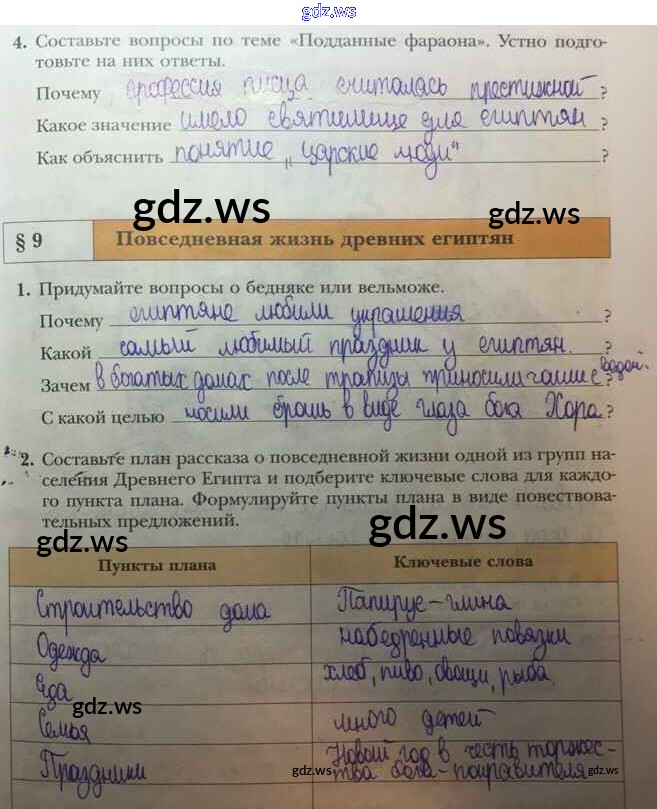 gdz.ws
4. Составьте вопросы по теме «Подданные фараона». Устно подго-
товьте на них ответы.
Почему профессия писца считалась престижной ?
Какое значение имело святилище для египтян ?
Как объяснить понятие „царские люди" ?
gdz.ws
gdz.ws
§ 9 Повседневная жизнь древних египтян
1. Придумайте вопросы о бедняке или вельможе.
Почему египтяне любили украшения ?
Какой самый любимый праздник у египтян. ?
Зачем в богатых домах после трапизы приносили чаши с водой. ?
С какой целью носили брошь в виде глаза бога Хора ?
2. Составьте план рассказа о повседневной жизни одной из групп на-
селения Древнего Египта и подберите ключевые слова для каждо-
го пункта плана. Формулируйте пункты плана в виде повествова-
тельных предложений.
gdz.ws
gdz.ws
Пункты плана Ключевые слова
Строительство дома Папирус – глина
Одежда набедренные повязки
Еда хлеб, пиво, овощи, рыба.
gdz.ws
Семья много детей
Праздники Новый год в честь торжес-
тва бога-поправителя
gdz.ws
gdz.ws